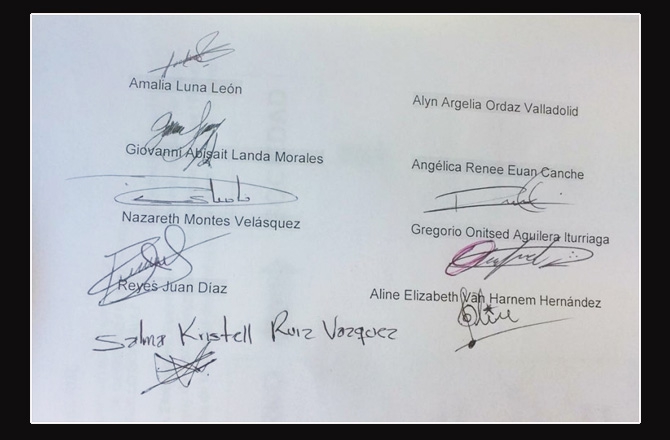 Amalia Luna León
Alyn Argelia Ordaz Valladolid
Giovanni Abisait Landa Morales
Angélica Renee Euan Canche
Nazareth Montes Velásquez
Gregorio Onitsed Aguilera Iturriaga
Reyes Juan Díaz
Aline Elizabeth Van Harnem Hernández
Aline
Salma Kristell Ruiz Vazquez